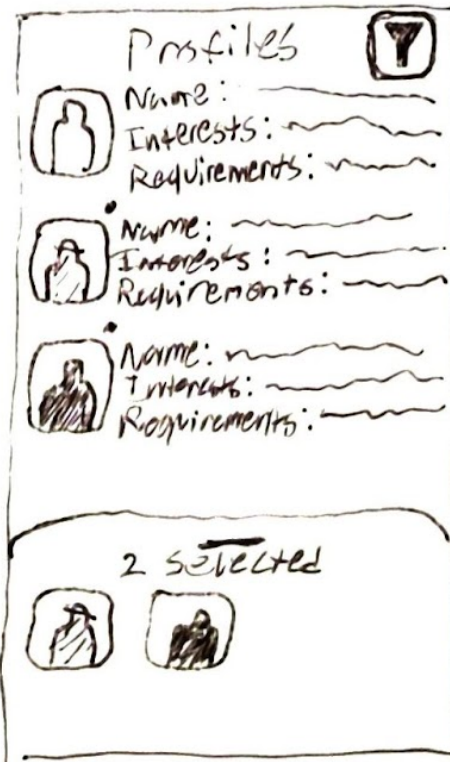 Profiles
Name:
Interests:
Requirements:
Name:
Interests:
Requirements:
Name:
Interests:
Requirements:
2 Selected